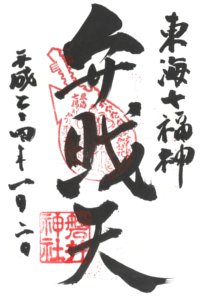 東海七福神
弁財天
平成二十四年一月二日
磐井
神社